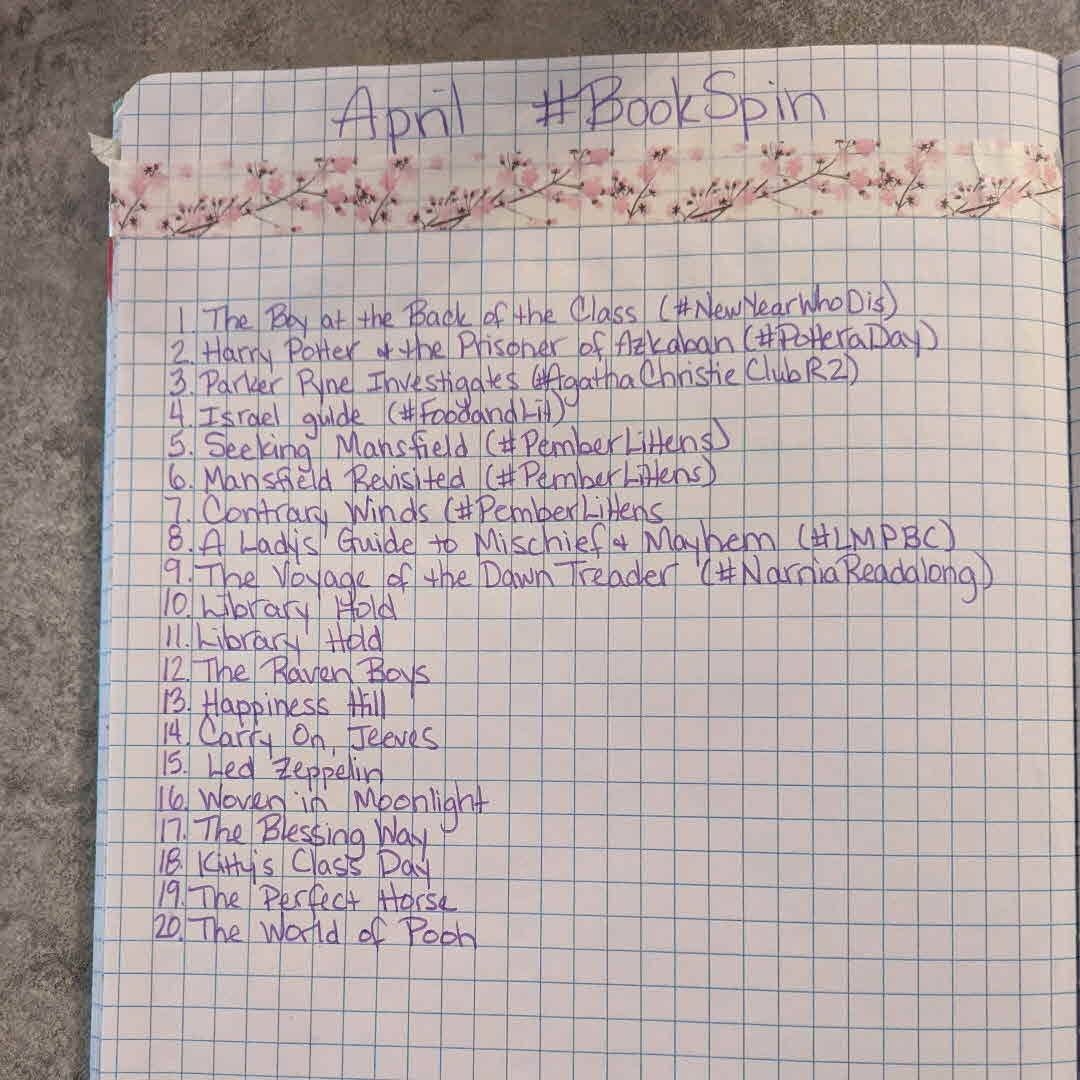 April #BookSpin
1. The Boy at the Back of the Class (#NewYearWhoDis)
2. Harry Potter & the Prisoner of Azkaban (#PotteraDay)
3. Parker Pyne Investigates (#AgathaChristieClubR2)
4. Israel guide (#FoodandLit)
5. Seeking Mansfield (#PemberLittens)
6. Mansfield Revisited (#PemberLittens)
7. Contrary Winds (#PemberLittens
8. A Lady's Guide to Mischief & Mayhem (#LMPBC)
9. The Voyage of the Dawn Treader (#NarniaReadalong)
10. Library Hold
11. Library Hold
12. The Raven Boys
13. Happiness Hill
14. Carry On, Jeeves
15. Led Zeppelin
16. Woven in Moonlight
17. The Blessing Way
18. Kitty's Class Day
19. The Perfect Horse
20. The World of Pooh